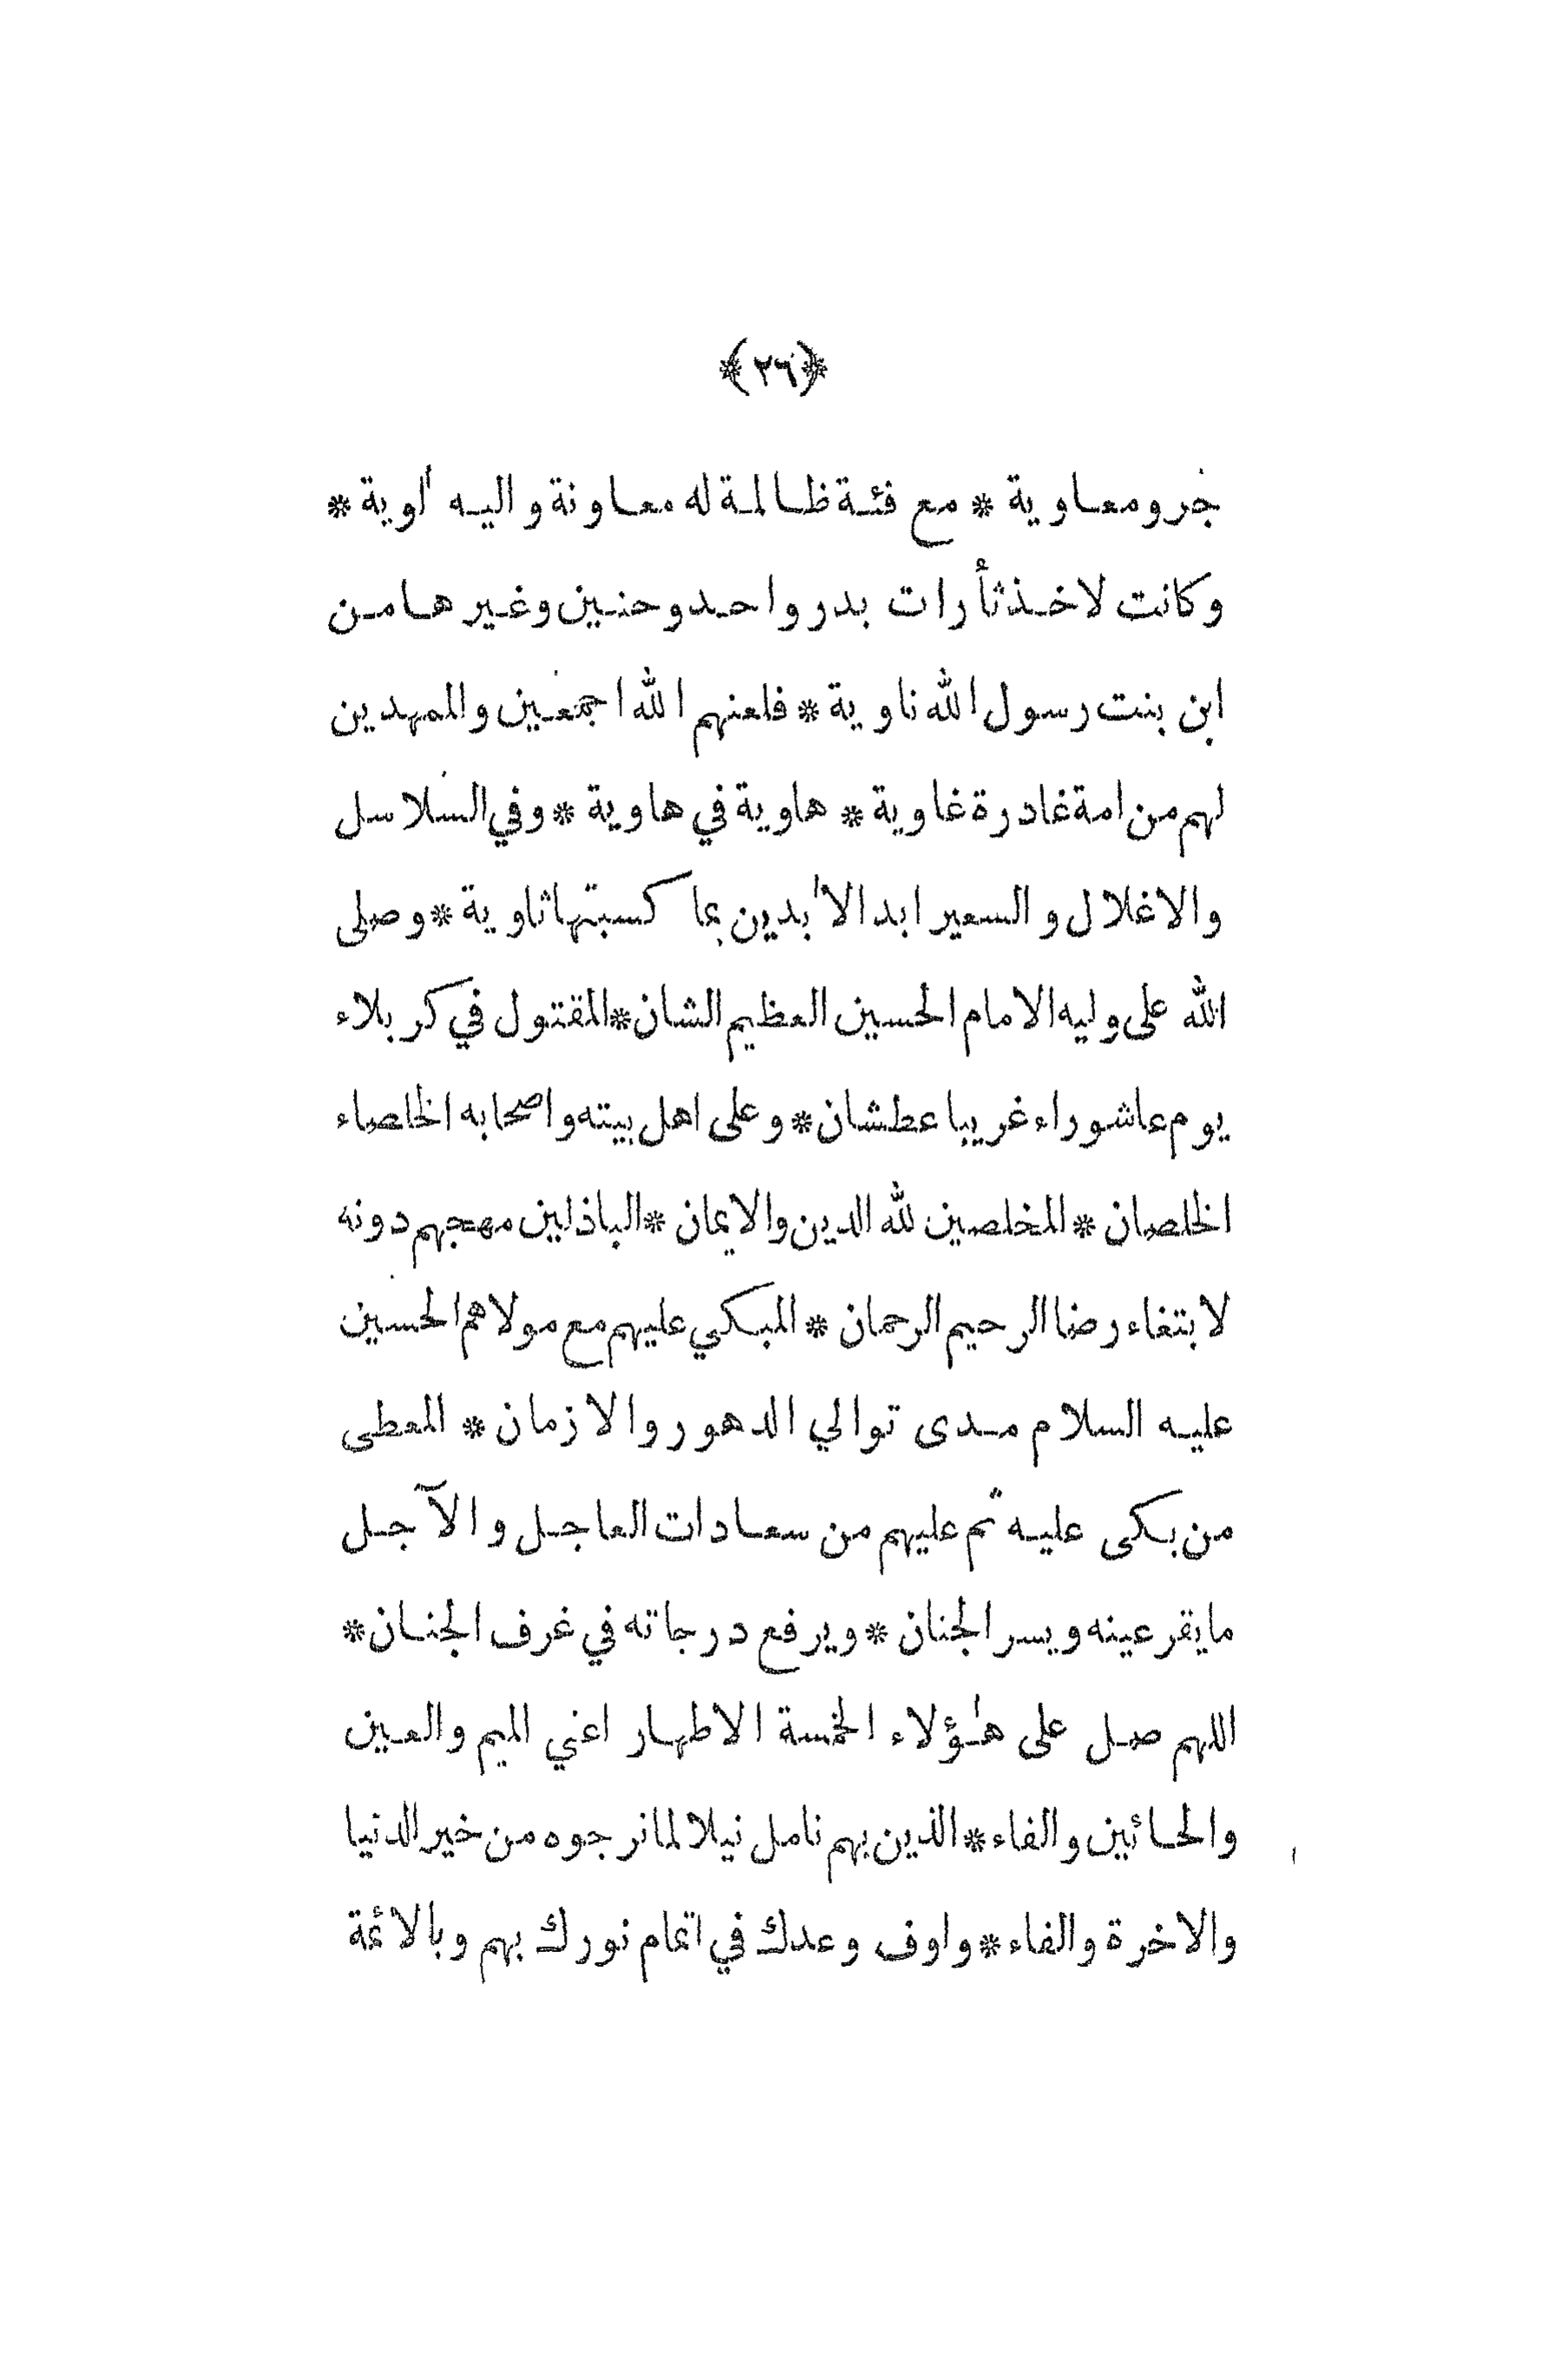 ﴿٢٦﴾
جرو معاوية * مع فئة ظالمة له معاونة و اليه ألوية *
وكانت لاخذ ثأرات بدر واحد وحنين وغيرها من
ابن بنت رسول الله ناوية * فلعنهم الله اجمعين والممهدين
لهم من امة غادرة غاوية * هاوية في هاوية * وفي السلاسل
والاغلال و السعير ابد الأبدين بما كسبتها ثاوية * وصلى
الله على وليه الامام الحسين العظيم الشان * المقتول في كربلاء
يوم عاشوراء غريبا عطشان * وعلى اهل بيته واصحابه الخلصاء
الخلصان * المخلصين لله الدين والايمان * الباذلين مهجهم دونه
لابتغاء رضا الرحيم الرحمان * المبكي عليهم مع مولاهم الحسين
عليه السلام مدى توالي الدهور والازمان * المعطى
من بكى عليه ثم عليهم من سعادات العاجل و الآجل
ما يقر عينه ويسر الجنان * ويرفع درجاته في غرف الجنان *
اللهم صل على هؤلاء الخمسة الاطهار اعني الميم والعين
والحائين والفاء * الذين بهم نامل نيلا لما نرجوه من خير الدنيا
والاخرة والفاء * واوف وعدك في اتمام نورك بهم وبالائمة